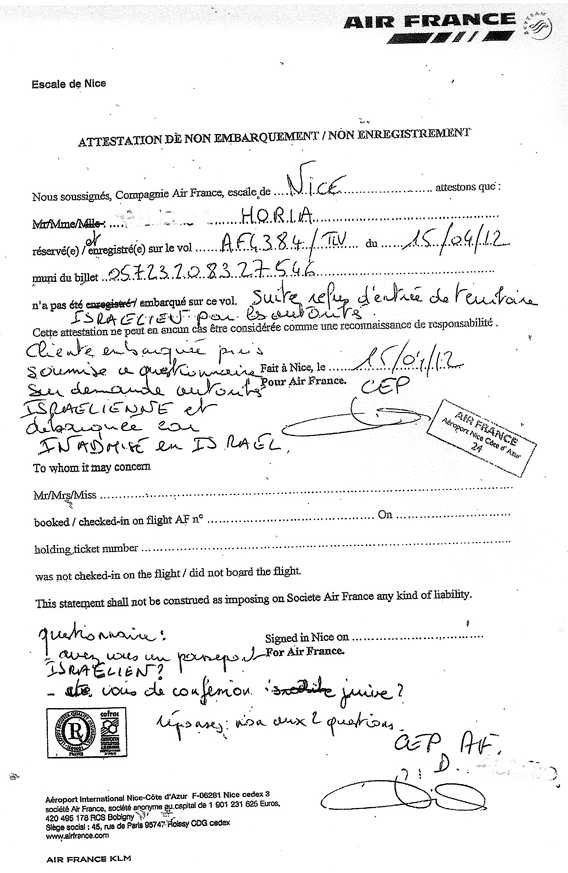 AIR FRANCE
SKYTEAM
Escale de Nice
ATTESTATION DE NON EMBARQUEMENT / NON ENREGISTREMENT
Nous soussignés, Compagnie Air France, escale de NICE attestons que :
Mr/Mme/Mlle : HORIA
réservé(e) / et enregistré(e) sur le vol AF4384/TLV du 15/04/12
muni du billet 05723208327546
n'a pas été enregistré / embarqué sur ce vol. Suite refus d'entrée de territoire
ISRAELIEN par les autorités.
Cette attestation ne peut en aucun cas être considérée comme une reconnaissance de responsabilité .
Cliente embarquée puis
soumise a questionnaire Fait à Nice, le 15/04/12
sur demande autorités Pour Air France. CEP
ISRAELIENNE et
debarquée car
INADMISE en ISRAEL.
AIR FRANCE
Aéroport Nice Côte d'Azur
24
To whom it may concern
Mr/Mrs/Miss
booked / checked-in on flight AF n° On
holding ticket number
was not cheked-in on the flight / did not board the flight.
This statement shall not be construed as imposing on Societe Air France any kind of liability.
questionnaire : Signed in Nice on
- avez vous un passeport For Air France.
ISRAELIEN ?
- vous de confession juive ?
réponses : non aux 2 questions.
CEP AF.
D.
cofrac
Aéroport International Nice-Côte d'Azur F-06281 Nice cedex 3
société Air France, société anonyme au capital de 1 901 231 625 Euros,
420 495 178 RCS Bobigny
Siège social : 45, rue de Paris 95747 Roissy CDG cedex
www.airfrance.com
AIR FRANCE KLM